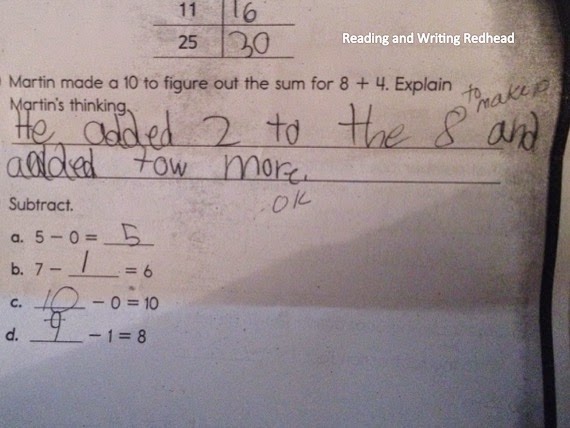 11 16
25 30
Reading and Writing Redhead
Martin made a 10 to figure out the sum for 8 + 4. Explain
Martin's thinking.
to make 10
He added 2 to the 8 and
added tow more.
OK
Subtract.
a. 5 – 0 = 5
b. 7 – 1 = 6
c. 10 – 0 = 10
d. 9 – 1 = 8